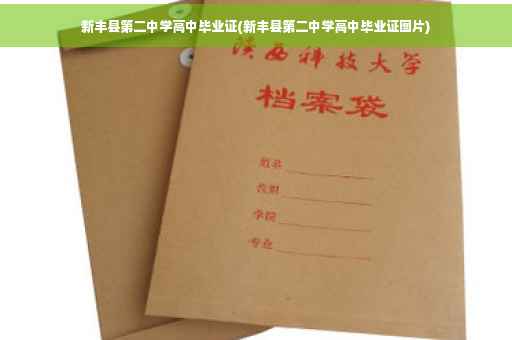 新丰县第二中学高中毕业证(新丰县第二中学高中毕业证图片)
陕西科技大学
档案袋
姓名
学院
专业